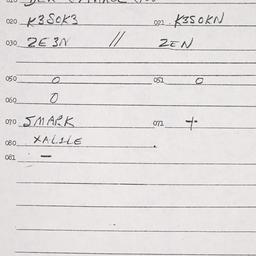 020 K3SOK3 021 K3SOKN
030 ZE3N // ZEN
050 0 051 0
060 0
070 SMARK 071 +
080 XALILE
081 —